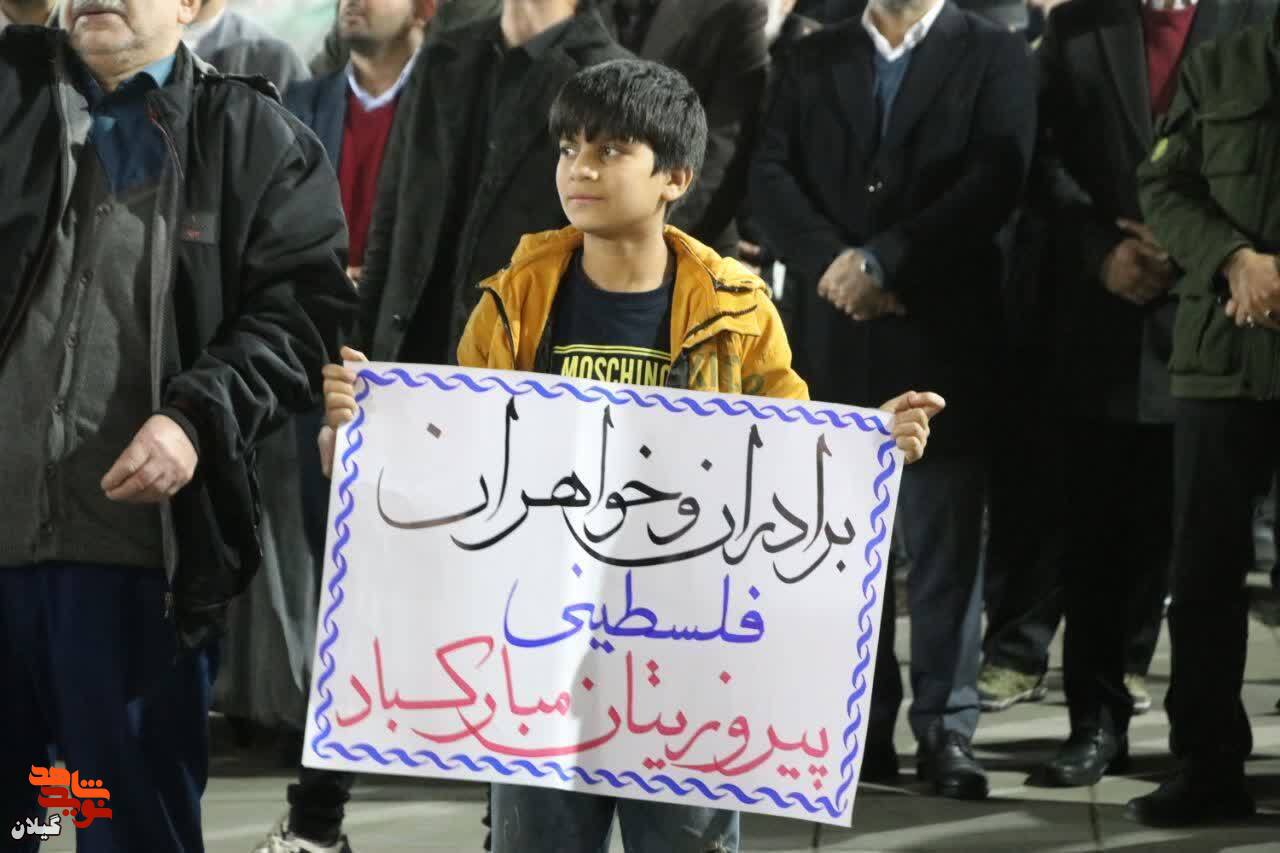 MOSCHINO
برادران و خواهران
فلسطینی
پیروزیتان مبارکباد
نوید شاهد
گیلان